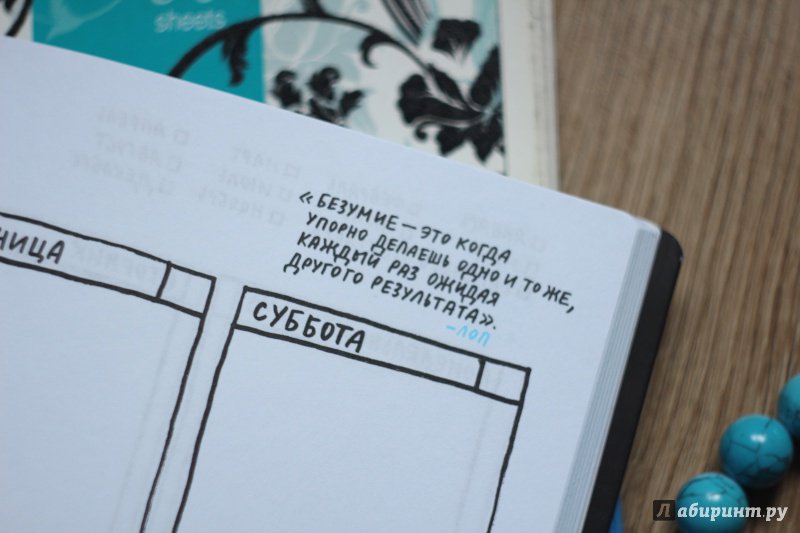 sheets
«БЕЗУМИЕ — ЭТО КОГДА
УПОРНО ДЕЛАЕШЬ ОДНО И ТО ЖЕ,
КАЖДЫЙ РАЗ ОЖИДАЯ
ДРУГОГО РЕЗУЛЬТАТА».
-ЛОП
НИЦА
СУББОТА
Лабиринт.ру